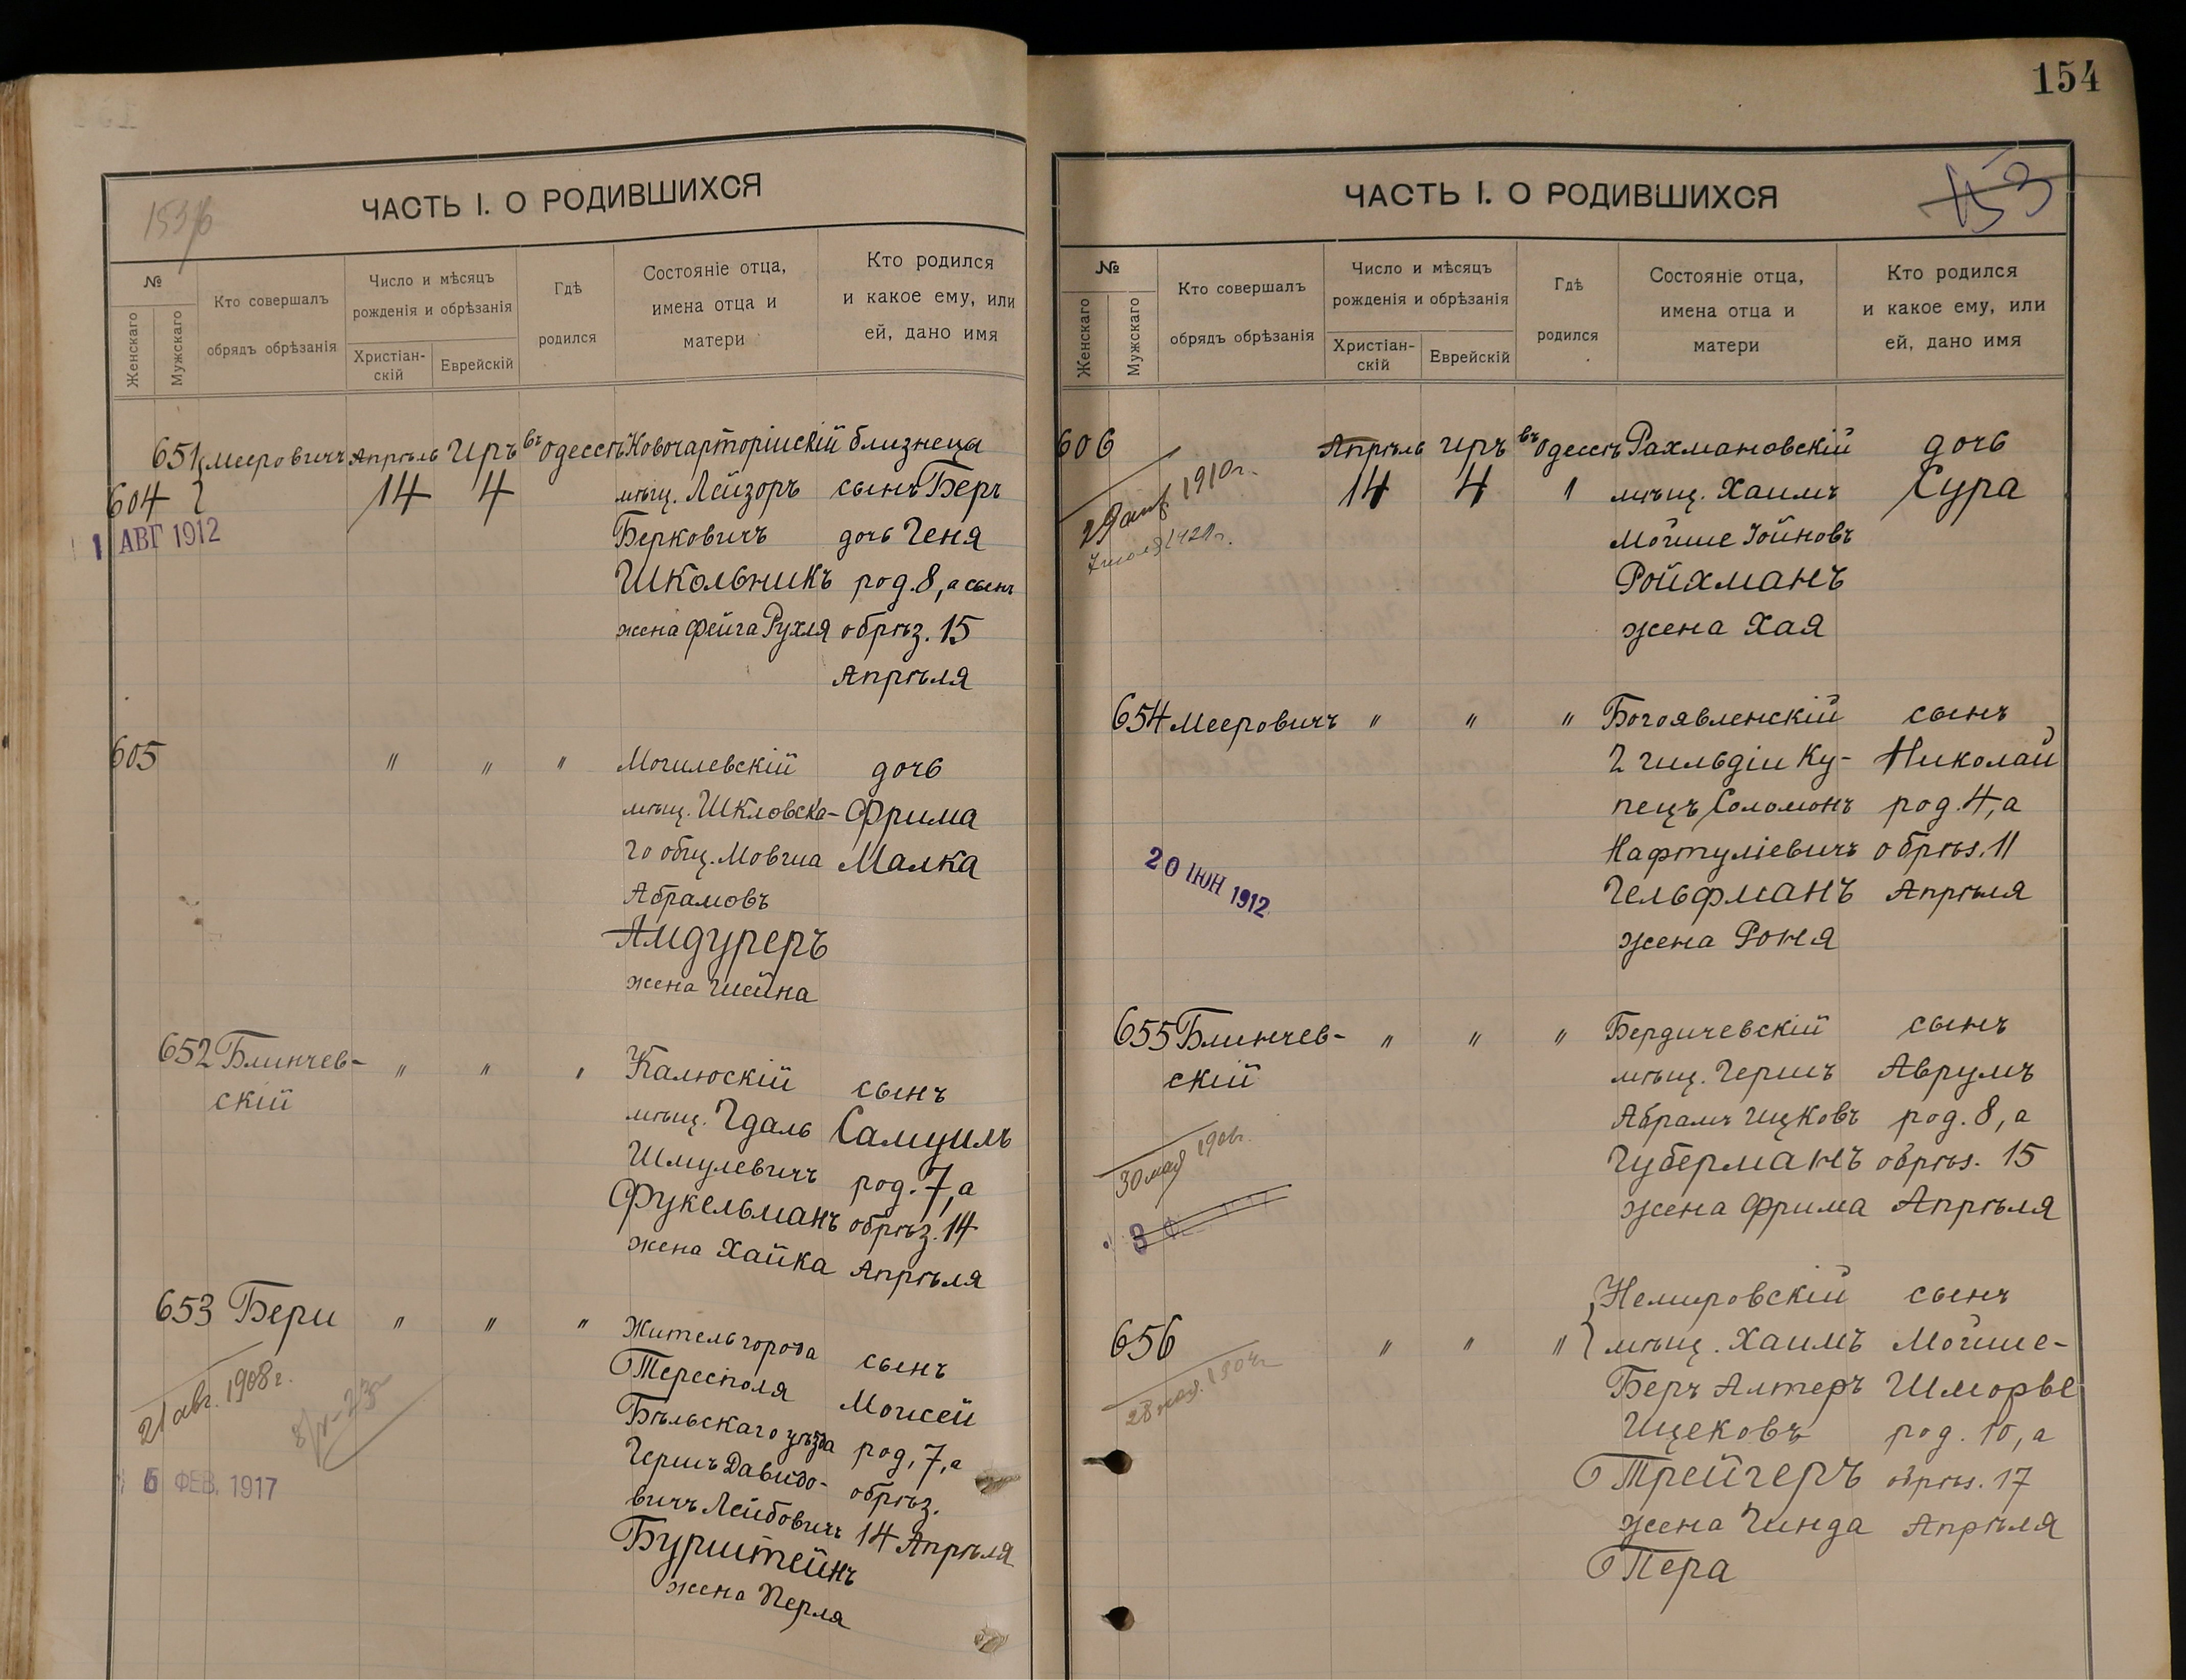 153б
ЧАСТЬ I. О РОДИВШИХСЯ
№
Женскаго
Мужскаго
Кто совершалъ
обрядъ обрѣзанія
Число и мѣсяцъ
рожденія и обрѣзанія
Христіан-
скій
Еврейскій
Гдѣ
родился
Состояніе отца,
имена отца и
матери
Кто родился
и какое ему, или
ей, дано имя
651 Мееровичъ Апрѣль Иръ въ Одессѣ Новочарторійскій близнеца
604 14 4 мѣщ. Лейзоръ сынъ Беръ
1 АВГ 1912
Берковичъ дочь Геня
Школьникъ род. 8, а сынъ
жена Фейга Рухля обрѣз. 15
Апрѣля
605 " " " Могилевскій дочь
мѣщ. Шкловска- Фрима
го общ. Мовша Малка
Абрамовъ
Амдуреръ
жена Шейна
652 Блинчев- " " " Калюскій сынъ
скій
мѣщ. Гдаль Самуилъ
Шмулевичъ род. 7, а
Фукельманъ обрѣз. 14
жена Хайка Апрѣля
653 Бери " " " Житель города сынъ
Тересполя Моисей
Бѣльскаго уѣзда род. 7, а
Гершъ Давидо- обрѣз.
вичъ Лейбовичъ 14 Апрѣля
Бурштейнъ
жена Перля
21 авг. 1908 г.
5 ФЕВ. 1917
154
153
ЧАСТЬ I. О РОДИВШИХСЯ
№
Женскаго
Мужскаго
Кто совершалъ
обрядъ обрѣзанія
Число и мѣсяцъ
рожденія и обрѣзанія
Христіан-
скій
Еврейскій
Гдѣ
родился
Состояніе отца,
имена отца и
матери
Кто родился
и какое ему, или
ей, дано имя
606 Апрѣль Иръ въ Одессѣ Рахмановскій дочь
14 4 " мѣщ. Хаимъ Сура
29 1910 г.
Мойше Іойновъ
Ройхманъ
жена Хая
654 Мееровичъ " " " Богоявленскій сынъ
2 гильдіи Ку- Николай
пецъ Соломонъ род. 4, а
Нафтуліевичъ обрѣз. 11
Гельфманъ Апрѣля
жена Роня
20 ІЮН 1912
655 Блинчев- " " " Бердичевскій сынъ
скій мѣщ. Гершъ Аврумъ
Абрамъ Ицковъ род. 8, а
Губерманъ обрѣз. 15
жена Фрима Апрѣля
30 мая
Немировскій сынъ
656 " " " мѣщ. Хаимъ Мойше-
Беръ Алтеръ Шморье
Ицековъ род. 10, а
Трейгеръ обрѣз. 17
жена Гинда Апрѣля
Пера
28 мая 1904 г